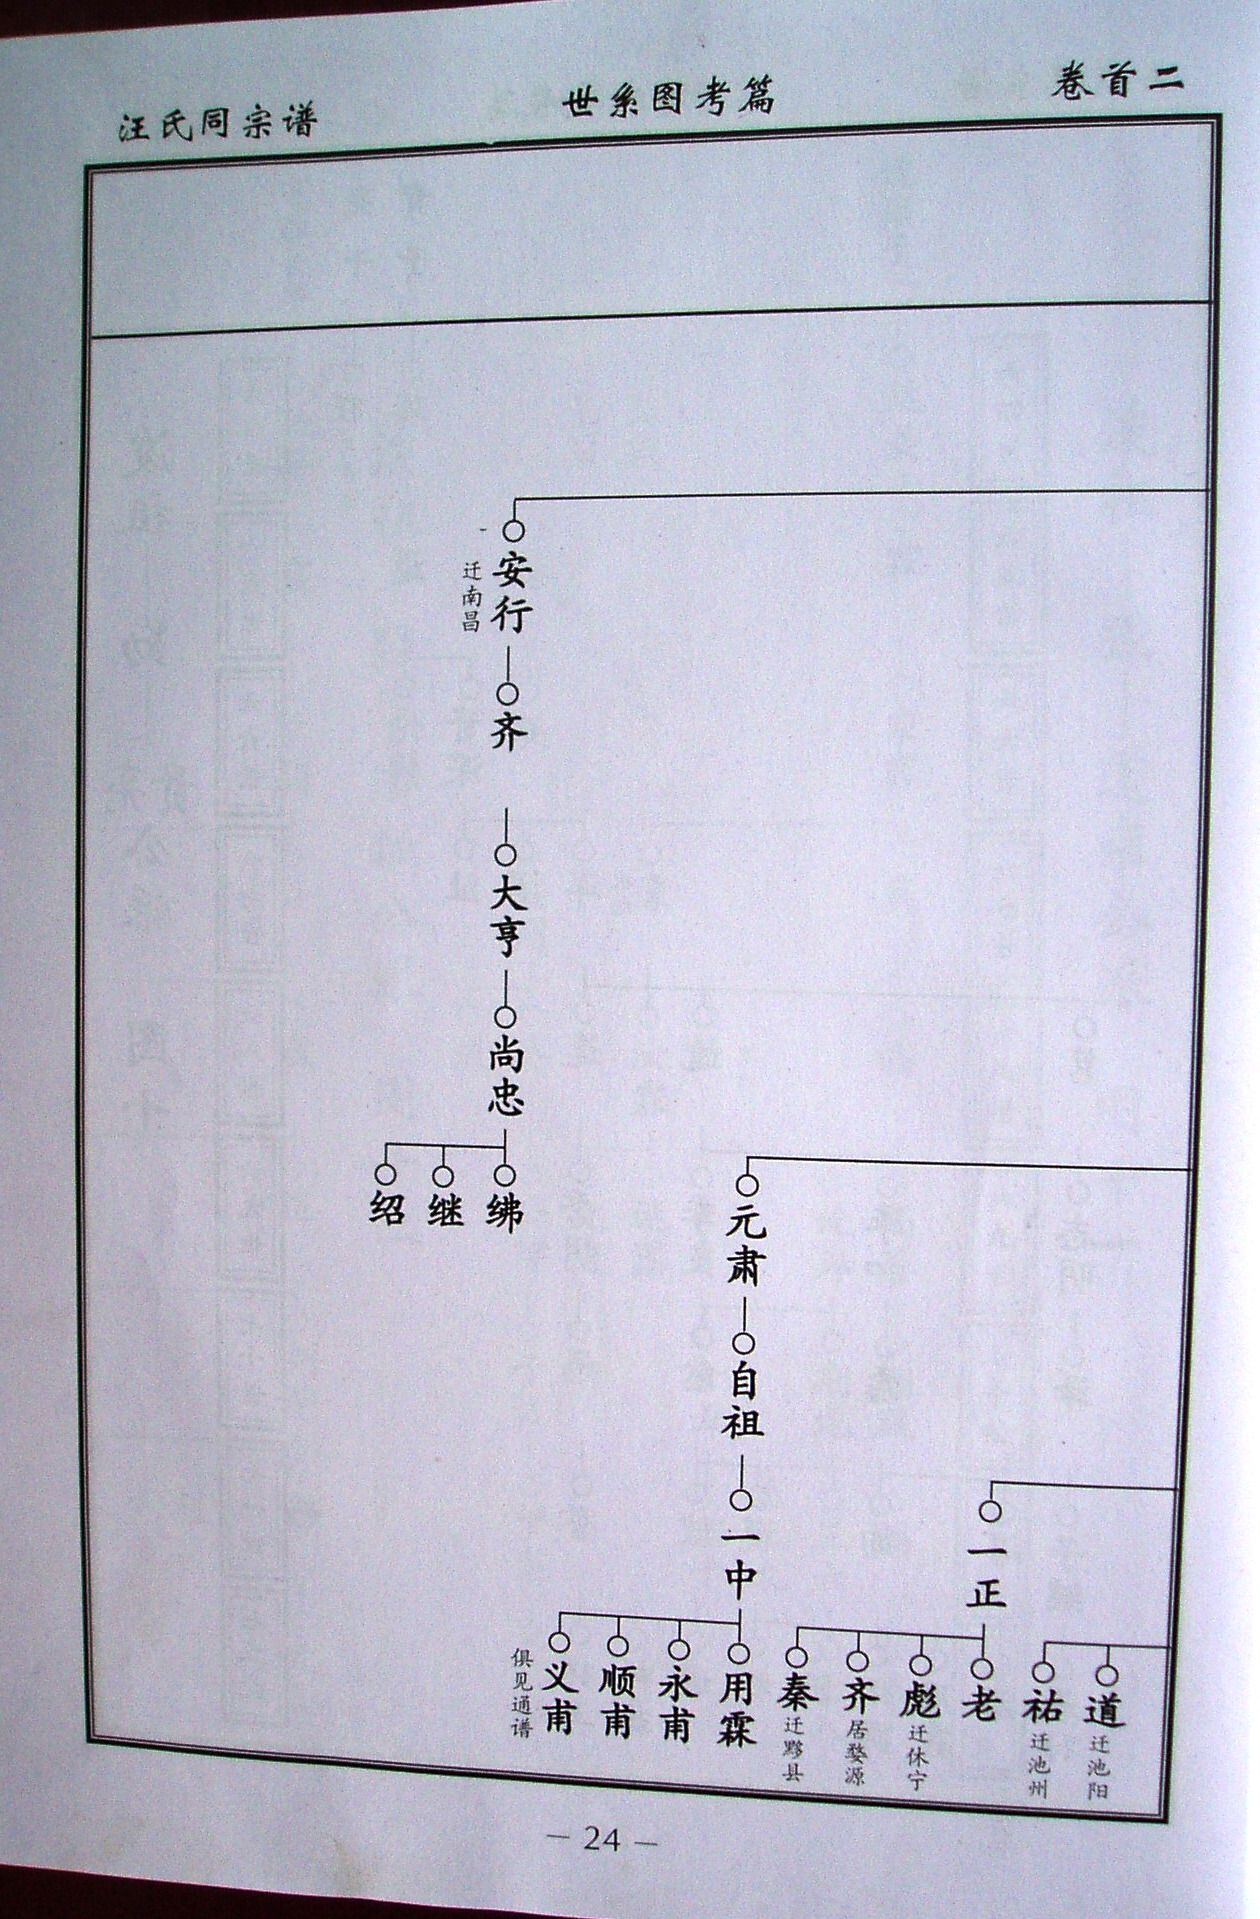 汪氏同宗谱
世系图考篇
卷首二
安行
迁南昌
齐
大亨
尚忠
绋
继
绍
元肃
自祖
一中
一正
道
迁池阳
祐
迁池州
老
彪
迁休宁
齐
居婺源
秦
迁黟县
用霖
永甫
顺甫
义甫
俱见通谱
— 24 —